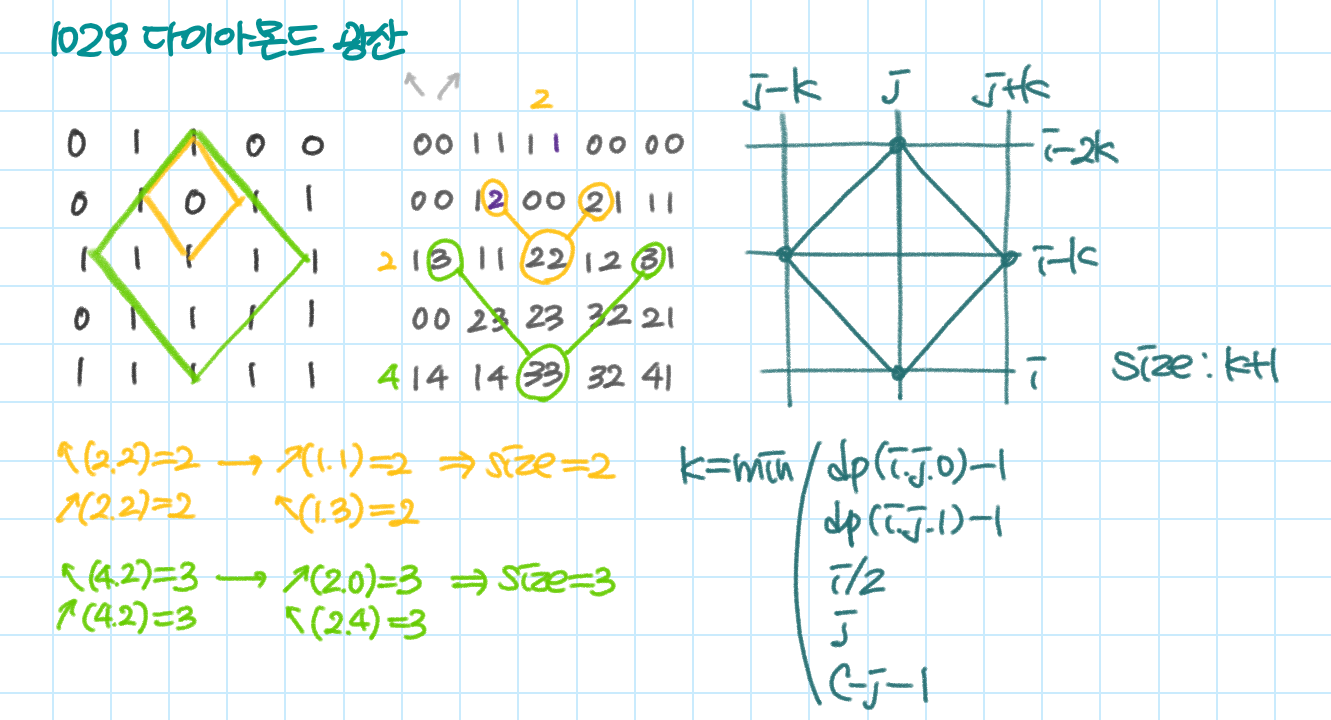 1028 다이아몬드 광산
↖ ↗
2
0 1 1 0 0
0 1 0 1 1
1 1 1 1 1
0 1 1 1 1
1 1 1 1 1
00 11 11 00 00
00 12 00 21 11
2 13 11 22 12 31
00 23 23 32 21
4 14 14 33 32 41
j-k j j+k
i-2k
i-k
i
size: k+1
↖(2.2)=2 → ↗(1.1)=2 ⇒ size=2
↗(2.2)=2 ↖(1.3)=2
↖(4.2)=3 → ↗(2.0)=3 ⇒ size=3
↗(4.2)=3 ↖(2.4)=3
k=min( dp(i.j.0)-1
dp(i.j.1)-1
i/2
j
C-j-1